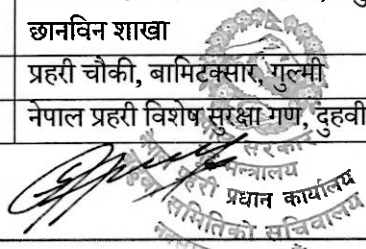 छानविन शाखा
प्रहरी चौकी, बामिटक्सार, गुल्मी
नेपाल प्रहरी विशेष सुरक्षा गण, दुहवी
सरकार
मन्त्रालय
प्रहरी प्रधान कार्यालय
समितिको सचिवालय